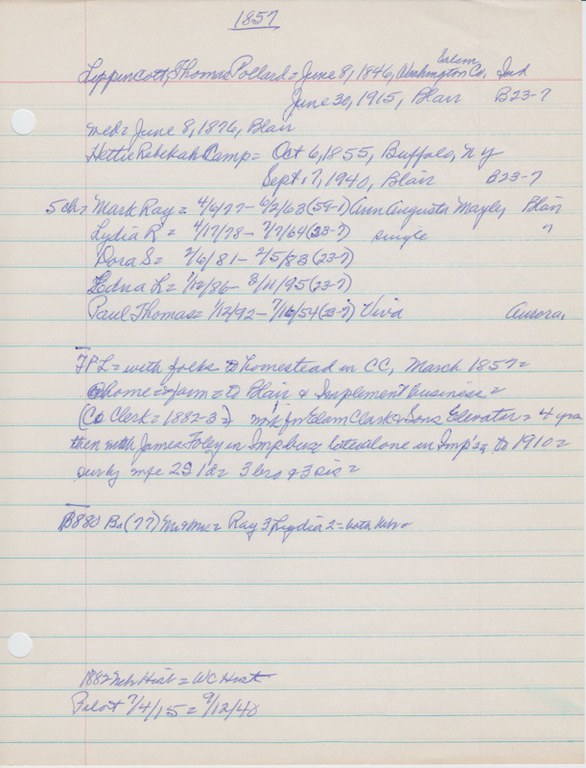 1857
Lippincott, Thomas Pollard = June 8, 1846, Salem, Washington Co, Ind
June 30, 1915, Blair B23-7
med = June 8, 1876, Blair
Hettie Rebekah Camp = Oct 6, 1855, Buffalo, N Y
Sept. 7, 1940, Blair B23-7
5 ch = Mark Ray = 4/6/77 - 6/2/63 (59-1) Ann Augusta Blair
Lydia R = 4/17/78 - 7/7/64 (23-7) single "
Dora S = 2/6/81 - 2/5/83 (23-7)
Edna L = 1/12/86 - 3/11/95 (23-7)
Paul Thomas = 1/12/92 - 7/16/54 (23-7) Viva Aurora,
TPL = with folks to homestead in CC, March 1857 =
@ home = farm = to Blair & Implement business =
(Co Clerk = 1882-3 =) Elam Clark & Sons Elevator = 4 yrs
then with James Foley in Imp bus, alone in to 1910 =
surv by 2S 1d = 3 bro & 3 sis =
1880 Bs (77) = Ray 3 Lydia 2 = both
1882 Neb Hist = WC Hist
Pilot 7/4/15 = 9/12/40